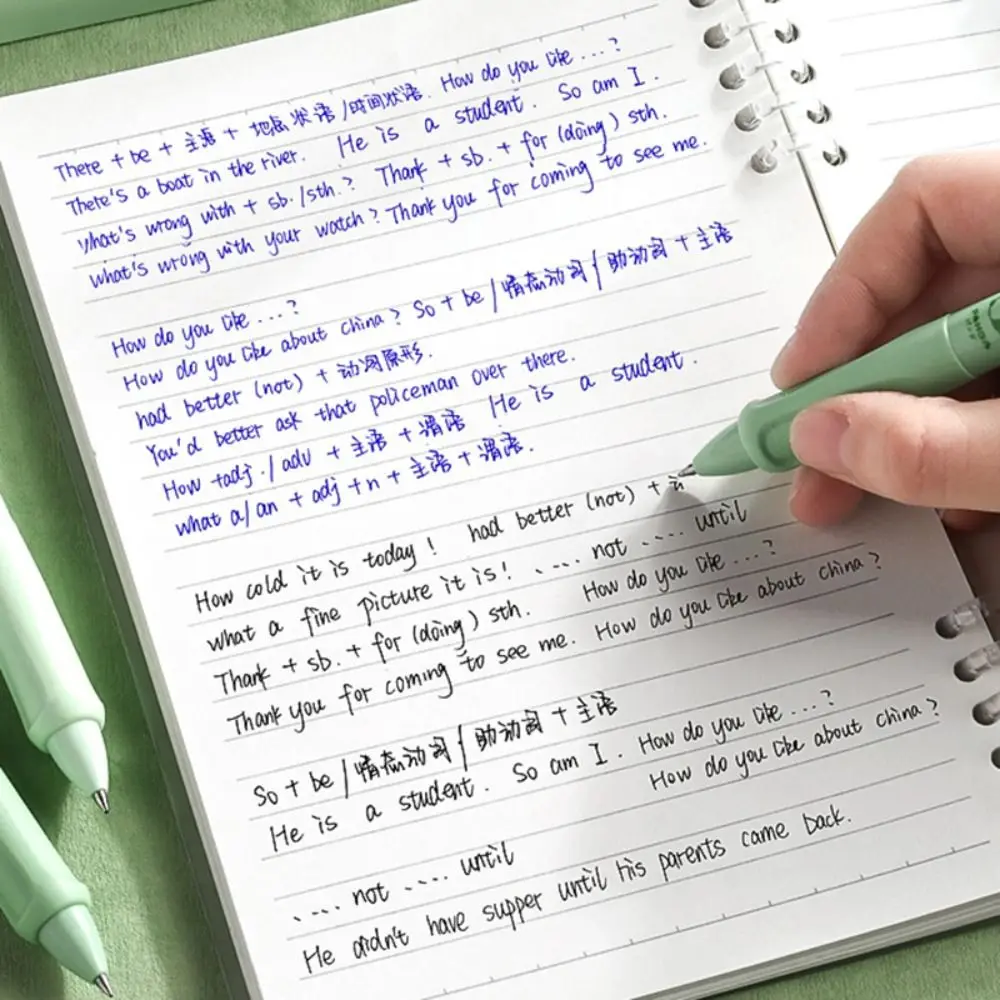 There + be + 主语 + 地点状语 /时间状语. How do you like ...?
There's a boat in the river. He is a student. So am I.
what's wrong with + sb./sth.? Thank + sb. + for (doing) sth.
what's wrong with your watch? Thank you for coming to see me.
How do you like ...?
How do you like about china? So + be /情态动词/ 助动词 + 主语
had better (not) + 动词原形.
You'd better ask that policeman over there.
How +adj./adv + 主语 + 谓语 He is a student.
what a/an + adj +n + 主语 + 谓语.
How cold it is today! had better (not) +
what a fine picture it is! ..... not .... until
Thank + sb. + for (doing) sth. How do you like ...?
Thank you for coming to see me. How do you like about china?
So + be /情态动词/ 助动词 + 主语
He is a student. So am I. How do you like ...?
How do you like about china?
.... not .... until
He didn't have supper until his parents came back.